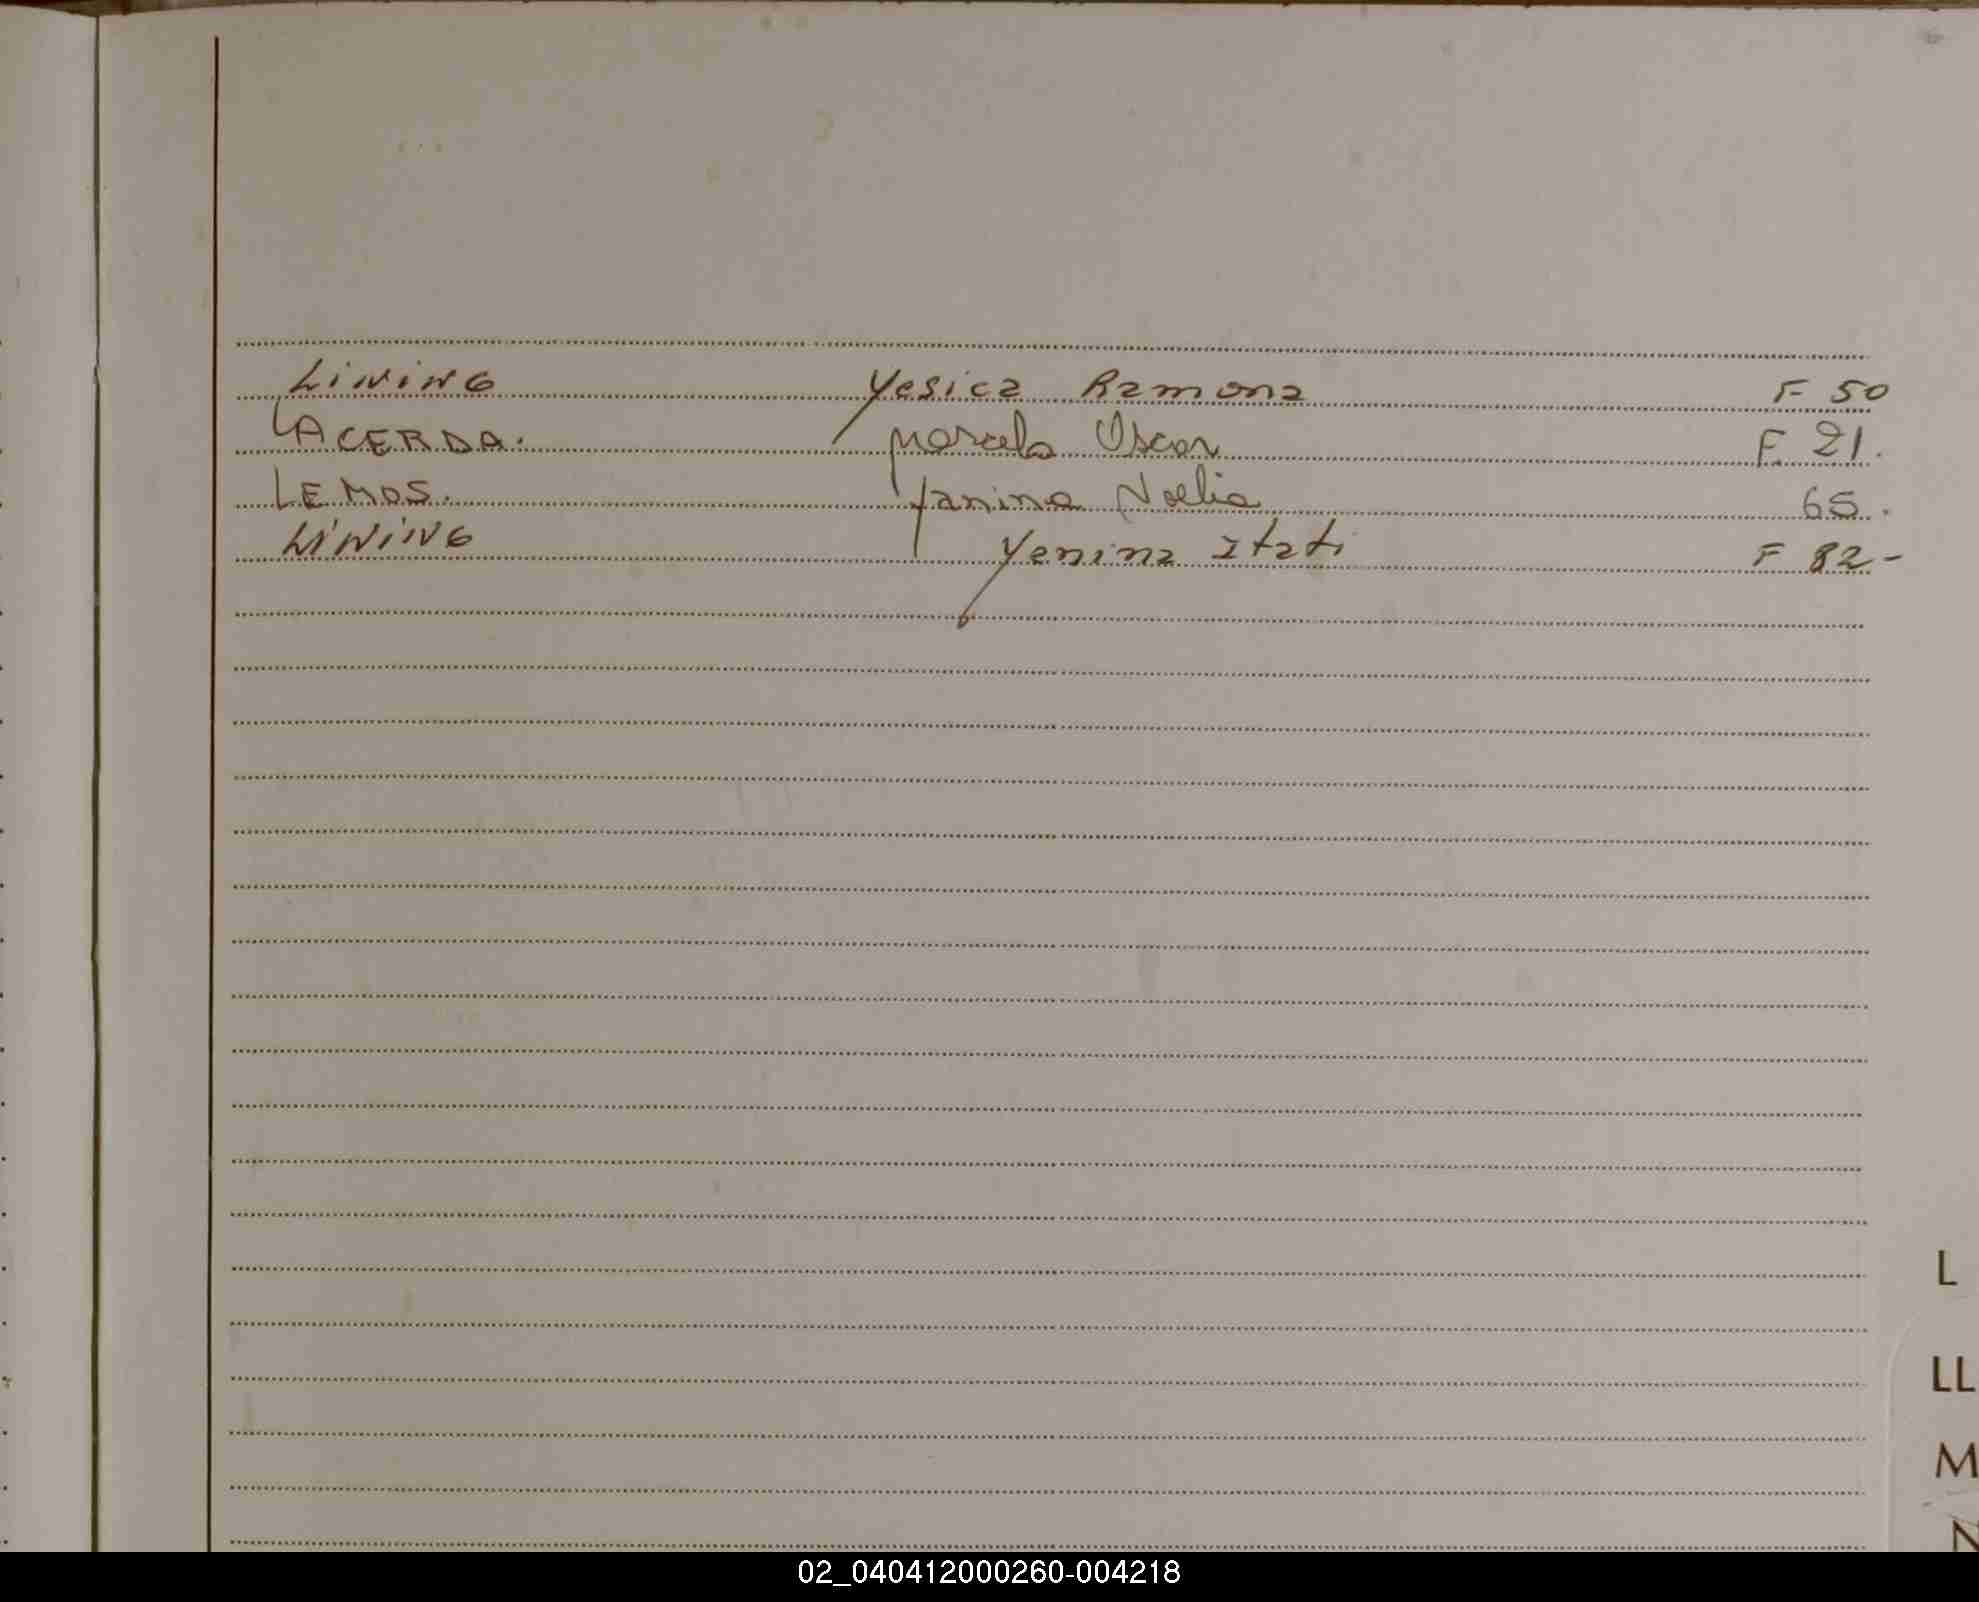 LiNiNG Yesica Ramona F 50
LACERDA. Marcelo Oscar F. 21.
LEMOS. Yanina Noelia 65.
LiNiNG Yenina Itati F 82-
L
LL
M
N
02_040412000260-004218